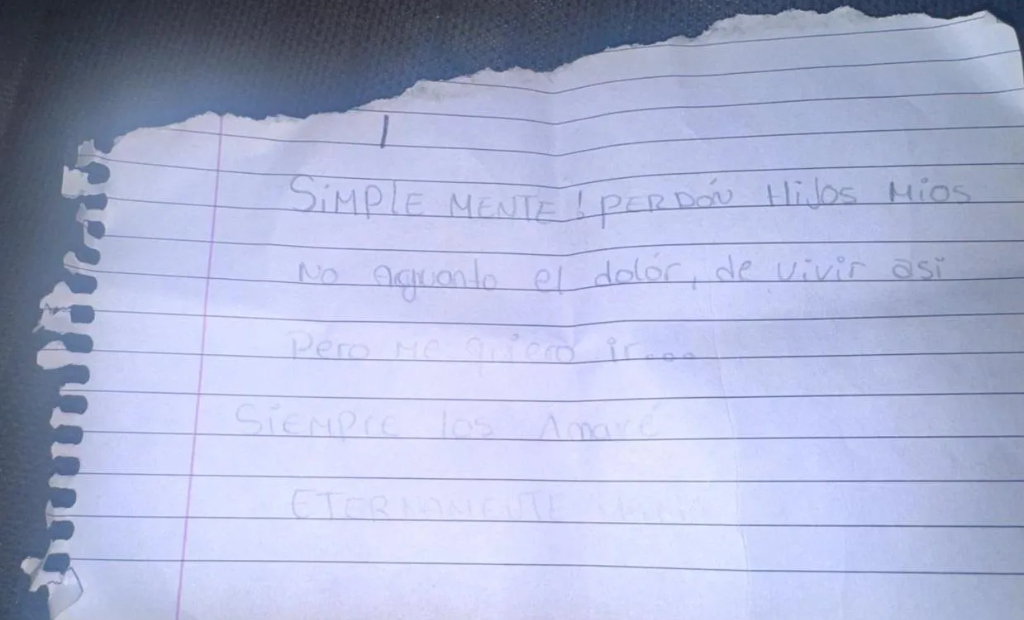 SiMPlE MENTE! PERDÓN HiJos Mios
No Aguanto el dolór, de vivir asi
Pero Me quiero ir....
SiEMPrE los Amaré
ETERNAMENTE